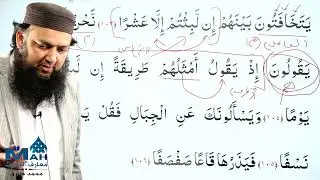 يَتَخَافَتُونَ بَيْنَهُمْ إِن لَبِثْتُمْ إِلَّا عَشْرًا (١٠٣)
يَقُولُونَ إِذْ يَقُولُ أَمْثَلُهُمْ طَرِيقَةً إِن
يَوْمًا (١٠٤) وَيَسْأَلُونَكَ عَنِ الْجِبَالِ فَقُلْ
نَسْفًا (١٠٥) فَيَذَرُهَا قَاعًا صَفْصَفًا (١٠٦)
MAH